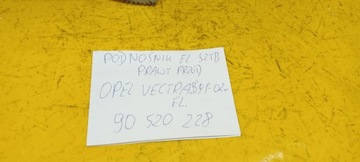 PODNOŚNIK EL SZYB
PRAWY PRZÓD
OPEL VECTRA
FL
90 520 228